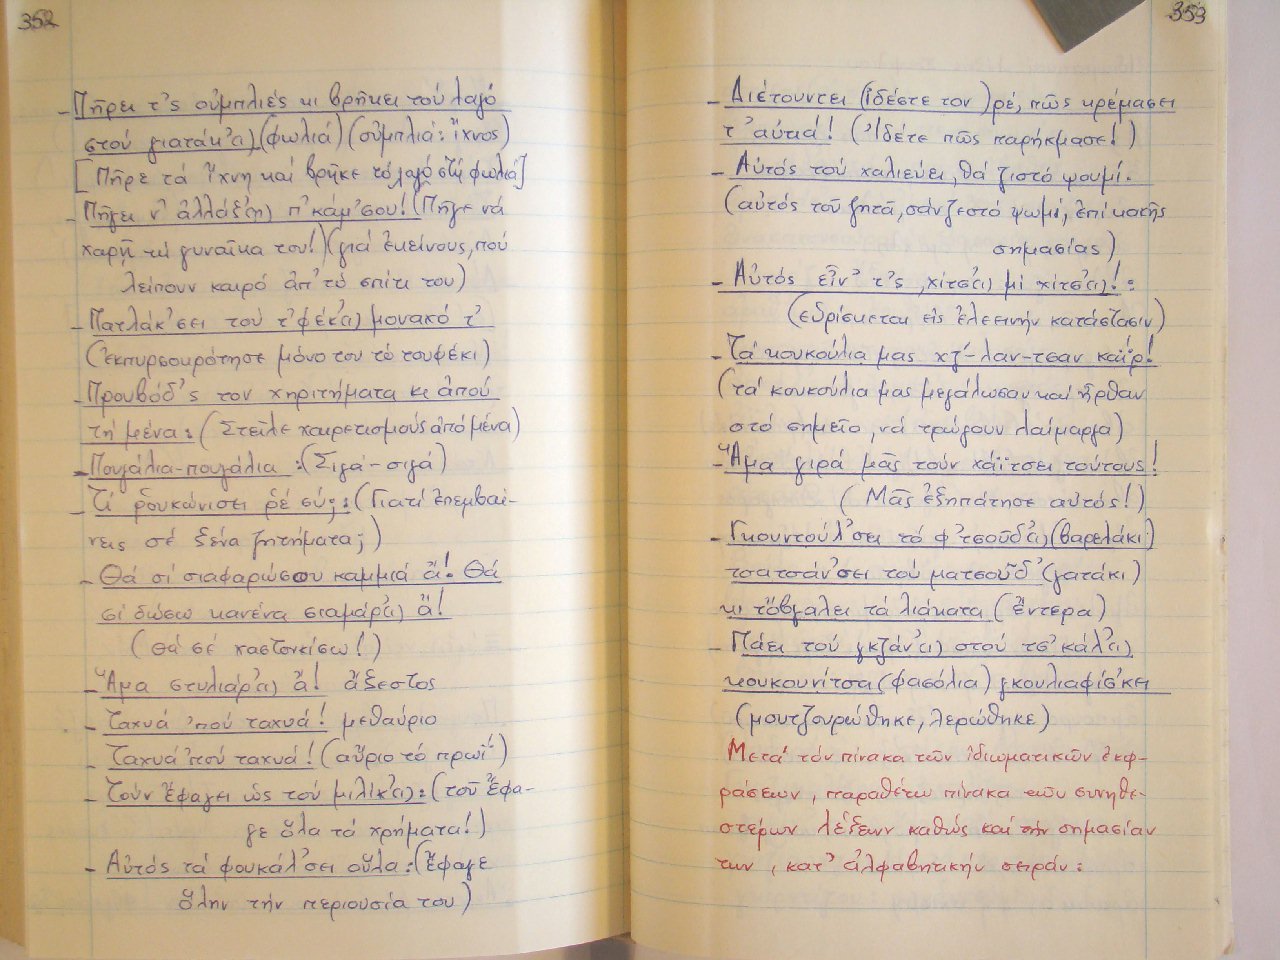 352
- Πῆρει τ'ς οὐμπλιές κι βρῆκει τού λαγό
στού γιατάκ'(ι) (φωλιά) (οὐμπλιά: ἴχνος)
[Πῆρε τά ἴχνη καί βρῆκε τό λαγό στή φωλιά]
- Πῆγει ν' ἀλλάξ(η) π'κάμ'σου! (Πῆγε νά
χαρῇ τή γυναῖκα του!) (γιά ἐκείνους, πού
λείπουν καιρό ἀπ' τό σπίτι του)
- Πατλάκ'σει τού τ'φέκ'(ι) μοναχό τ'
(ἐκπυρσοκρότησε μόνο του τό τουφέκι)
- Προυβόδ'ς τον χηριτήματα κι ἀπού
τή μένα: (Στεῖλε χαιρετισμούς ἀπό μένα)
- Πουγάλια-πουγάλια: (Σιγά-σιγά)
- Τί ρουκώνισει ρέ σύ;: (Γιατί ἐπεμβαί-
νεις σέ ξένα ζητήματα;)
- Θά σί σιαφαρώσου καμμιά ἄ! Θά
σί δώσω κανένα σιαμάρ'(ι) ἄ!
(Θά σέ χαστουκίσω!)
- Ἅμα στυλιάρ'(ι) ἄ! ἄξεστος
- Ταχυά 'πού ταχυά! μεθαύριο
- Ταχυά 'πού ταχυά! (αὔριο τό πρωί)
- Τούν ἔφαγει ὡς τού μιλίκ'(ι): (τοῦ ἔφα-
γε ὅλα τά χρήματα!)
- Αὐτός τά φουκάλ'σει οὗλα: (ἔφαγε
ὅλην τήν περιουσία του)
353
- Διέτουντει (ἰδέστε τον) ρέ, πῶς κρέμασει
τ' αὐτιά! (Ἰδέτε πῶς παρήκμασε!)
- Αὐτός τού χαλιεύει, θά ζιστό ψουμί.
(αὐτός τοῦ ζητᾶ, σάν ζεστό ψωμί, ἐπί κακῆς
σημασίας)
- Αὐτός εἶν' τ'ς, χίτσ'(ι) μί χίτσ'(ι)!:
(εὑρίσκεται εἰς ἐλεεινήν κατάστασιν)
- Τά κουκούλια μας χτ'-λαν-τσαν καΐρ!
(τά κουκούλια μας μεγάλωσαν καί ἦρθαν
στό σημεῖο, νά τρώγουν λαίμαργα)
- Ἅμα γιρά μᾶς τούν χάϊτσει τούτους!
(Μᾶς ἐξηπάτησε αὐτός!)
- Γκουντούλ'σει τό φ'τσοῦδ'(ι) (βαρελάκι)
τσατσάν'σει τού ματσοῦδ' (γατάκι)
κι τὄβγαλει τά λιάκατα (ἔντερα)
- Πάει τού γκζάν'(ι) στού τσ'κάλ'(ι)
κουκουνίτσα (φασόλια) γκουλιαφίσ'κει
(μουτζουρώθηκε, λερώθηκε)
Μετά τόν πίνακα τῶν ἰδιωματικῶν ἐκφ-
ράσεων, παραθέτω πίνακα τῶν συνηθε-
στέρων λέξεων καθώς καί τήν σημασίαν
των, κατ' ἀλφαβητικήν σειράν: